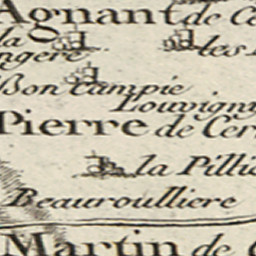 Agnant de Ce
la
les
ngere
Bon campie
Louvigny
Pierre de Cer
la Pillie
Beauroulliere
Martin de